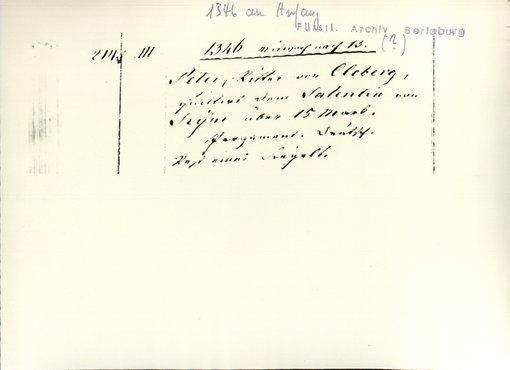 1346 am Anfang
Fürstl. Archiv Berleburg
214. III 1346 Mittwoch nach 13. (?)
Peter, Ritter von Cleberg,
quittirt dem Salentin von
Sayn über 15 Mark.
Pergament. Deutsch.
Rest eines Siegels.